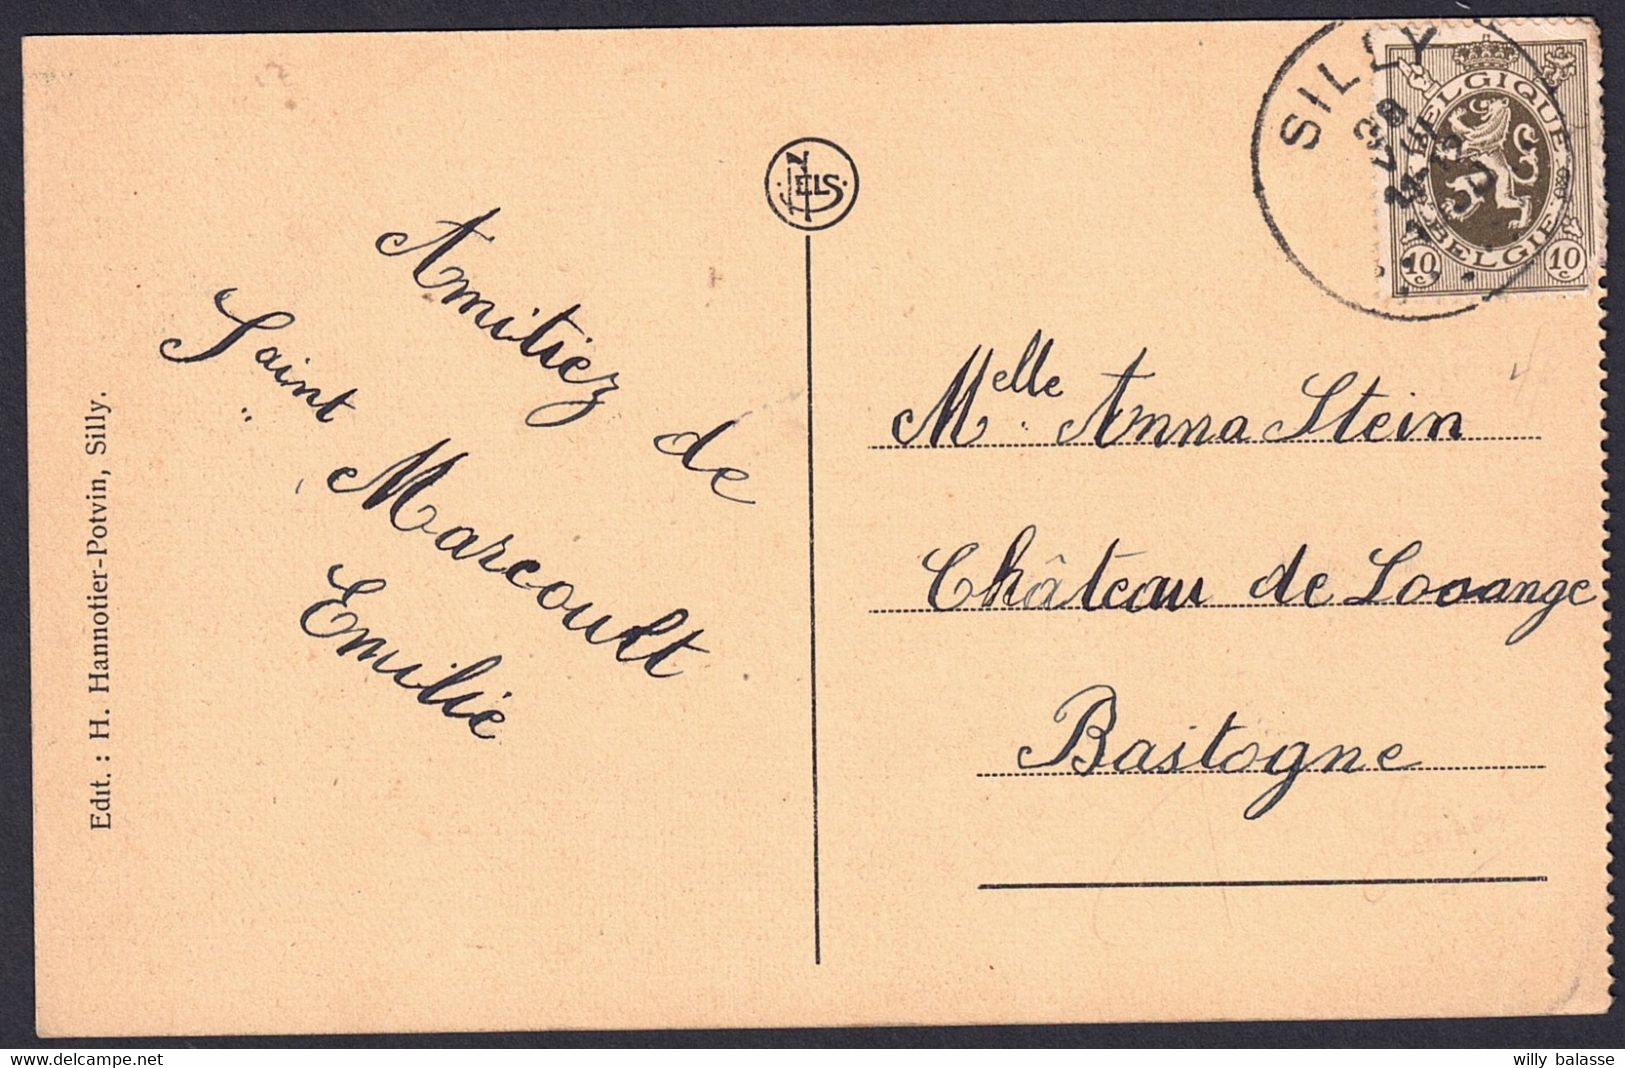 Edit. : H. Hannotier-Potvin, Silly.
Amitiez de
Saint Marcoult
Emilie
NELS
SILLY
BELGIQUE
BELGIE
10 c
10 c
Melle Anna Stein
Château de Looange
Bastogne
www.delcampe.net
willy balasse